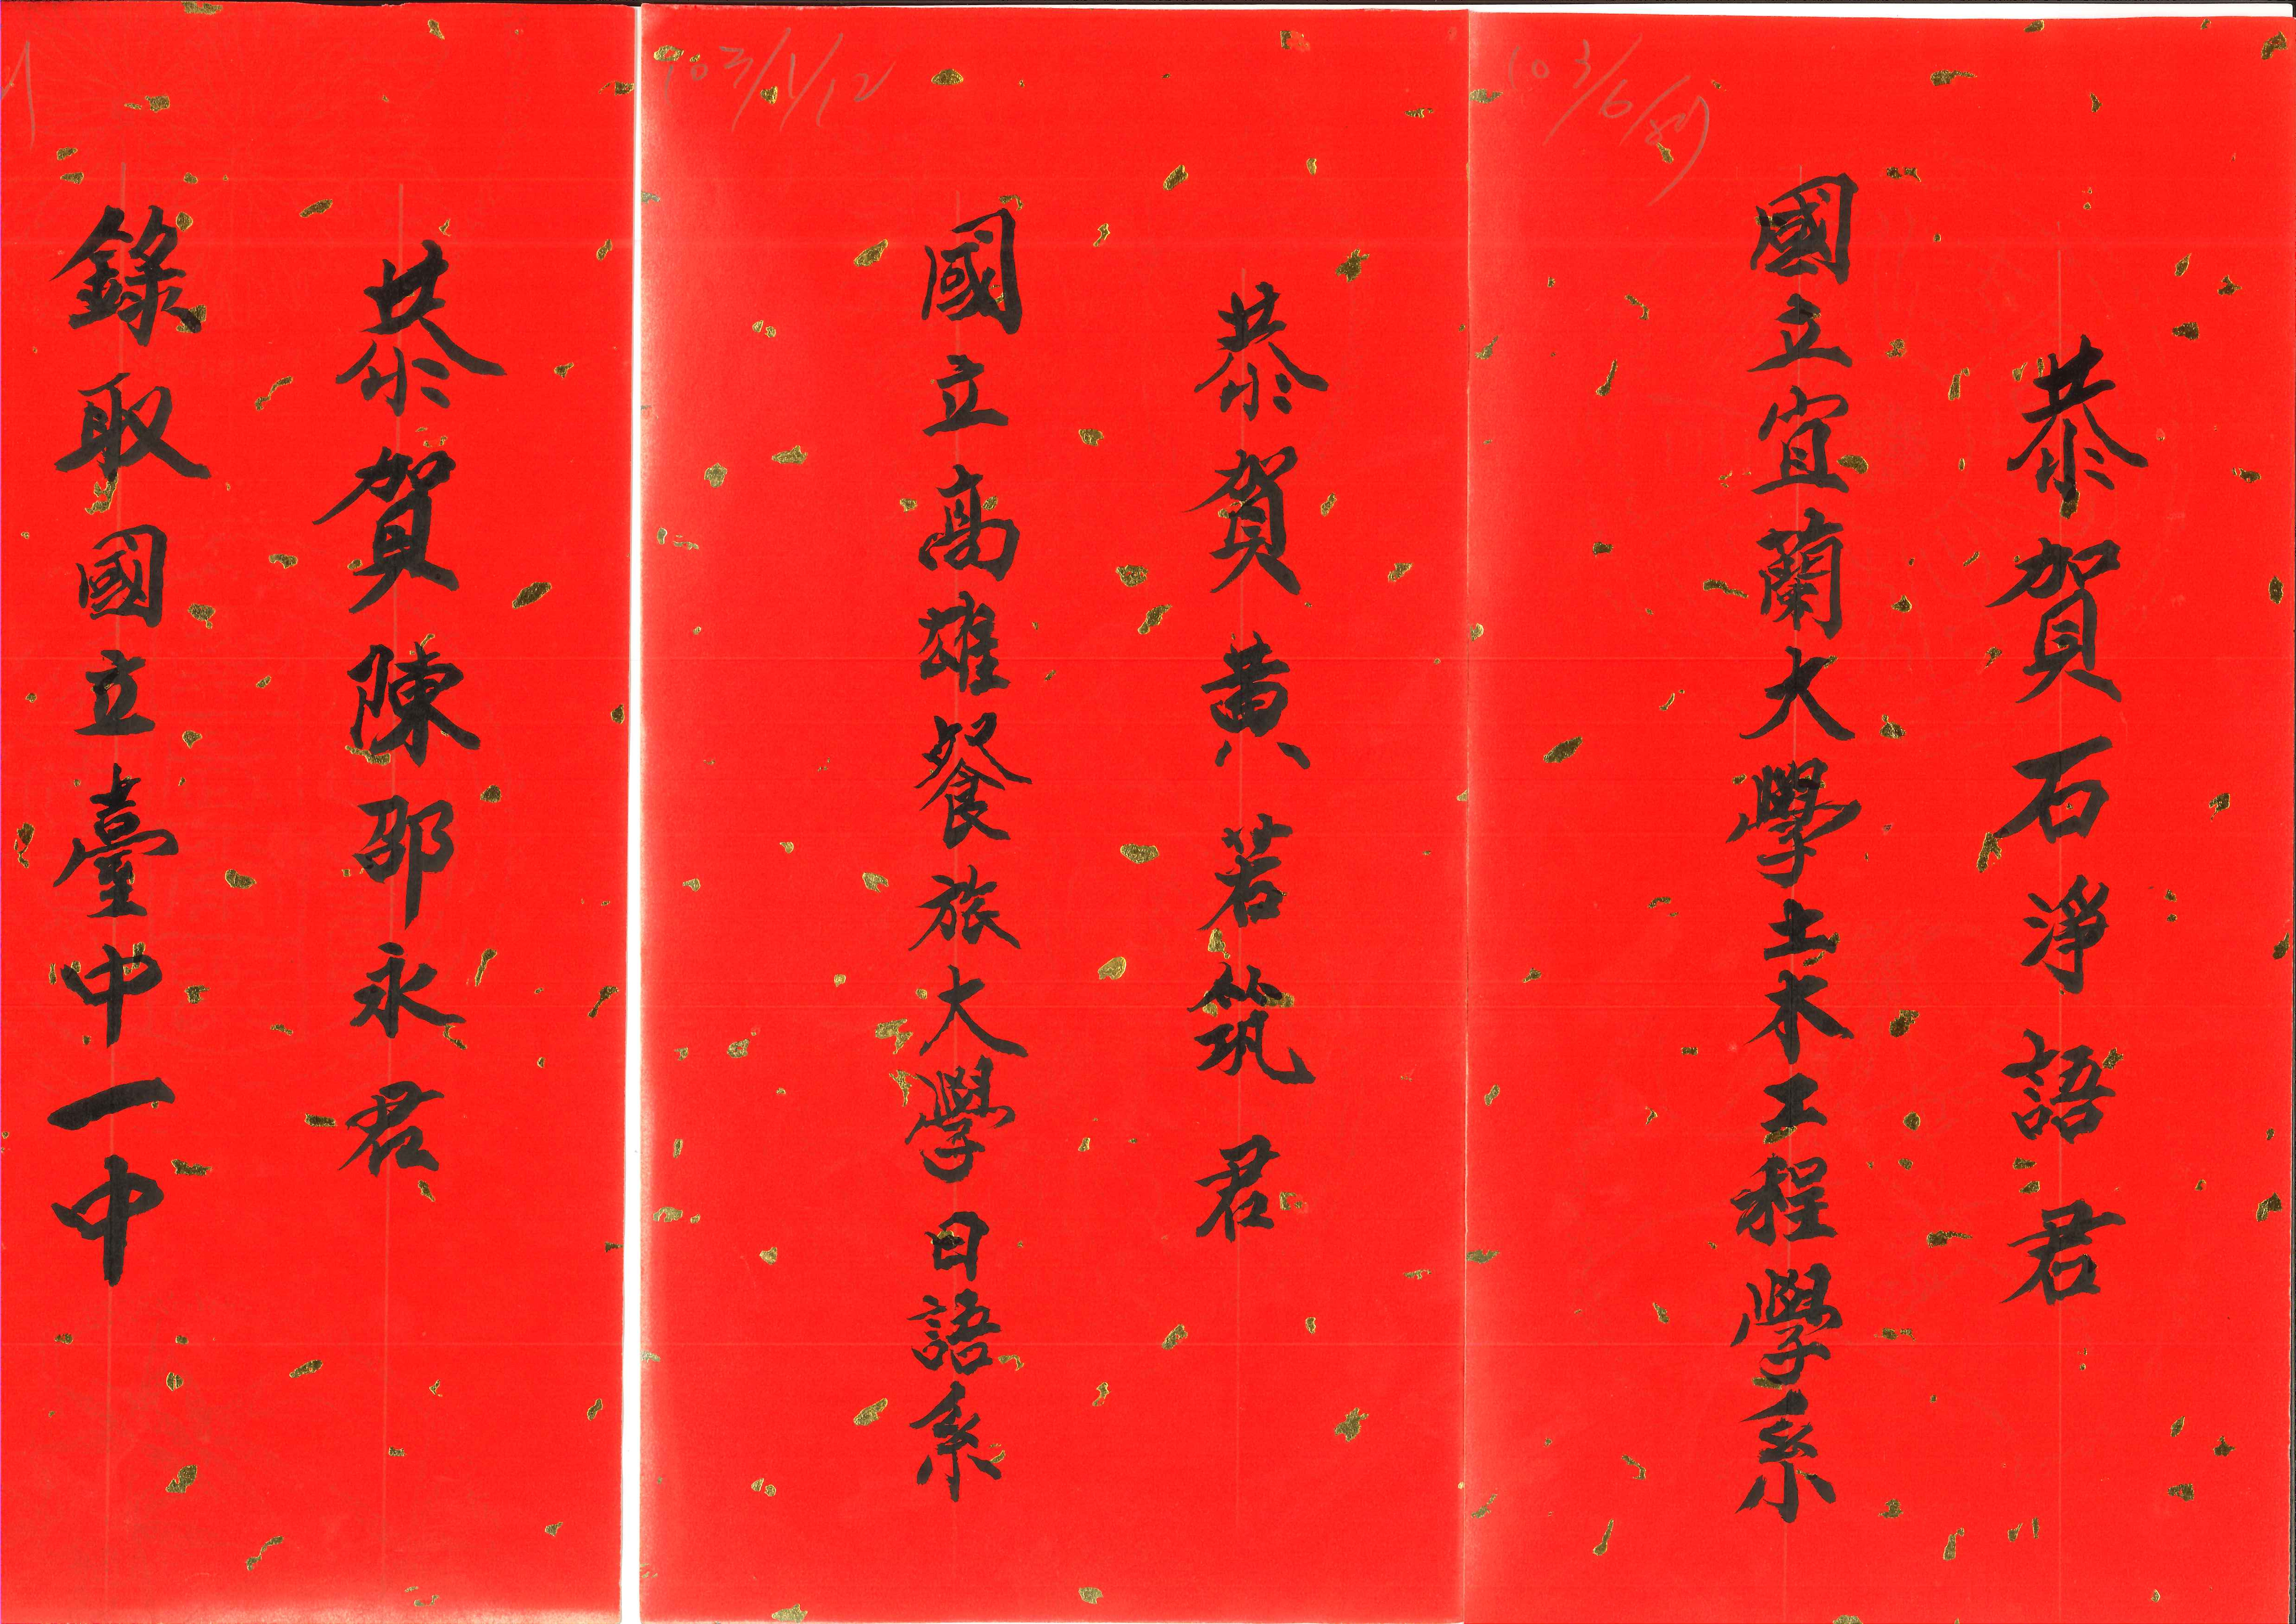 恭賀石淨語君
國立宜蘭大學土木工程學系
103/1/12
恭賀黃若筑君
國立高雄餐旅大學日語系
恭賀陳邵永君
錄取國立臺中一中